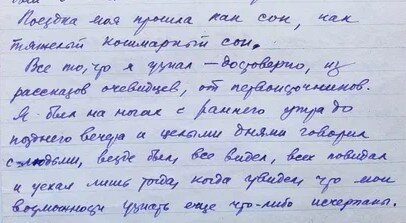 Поездка моя прошла как сон, как
тяжелый кошмарный сон.
Все то, что я узнал — достоверно, из
рассказов очевидцев, от первоисточников.
Я был на ногах с раннего утра до
позднего вечера и целыми днями говорил
с людьми, везде был, все видел, всех повидал
и уехал лишь тогда, когда увидел, что мои
возможности узнать еще что-либо исчерпаны.